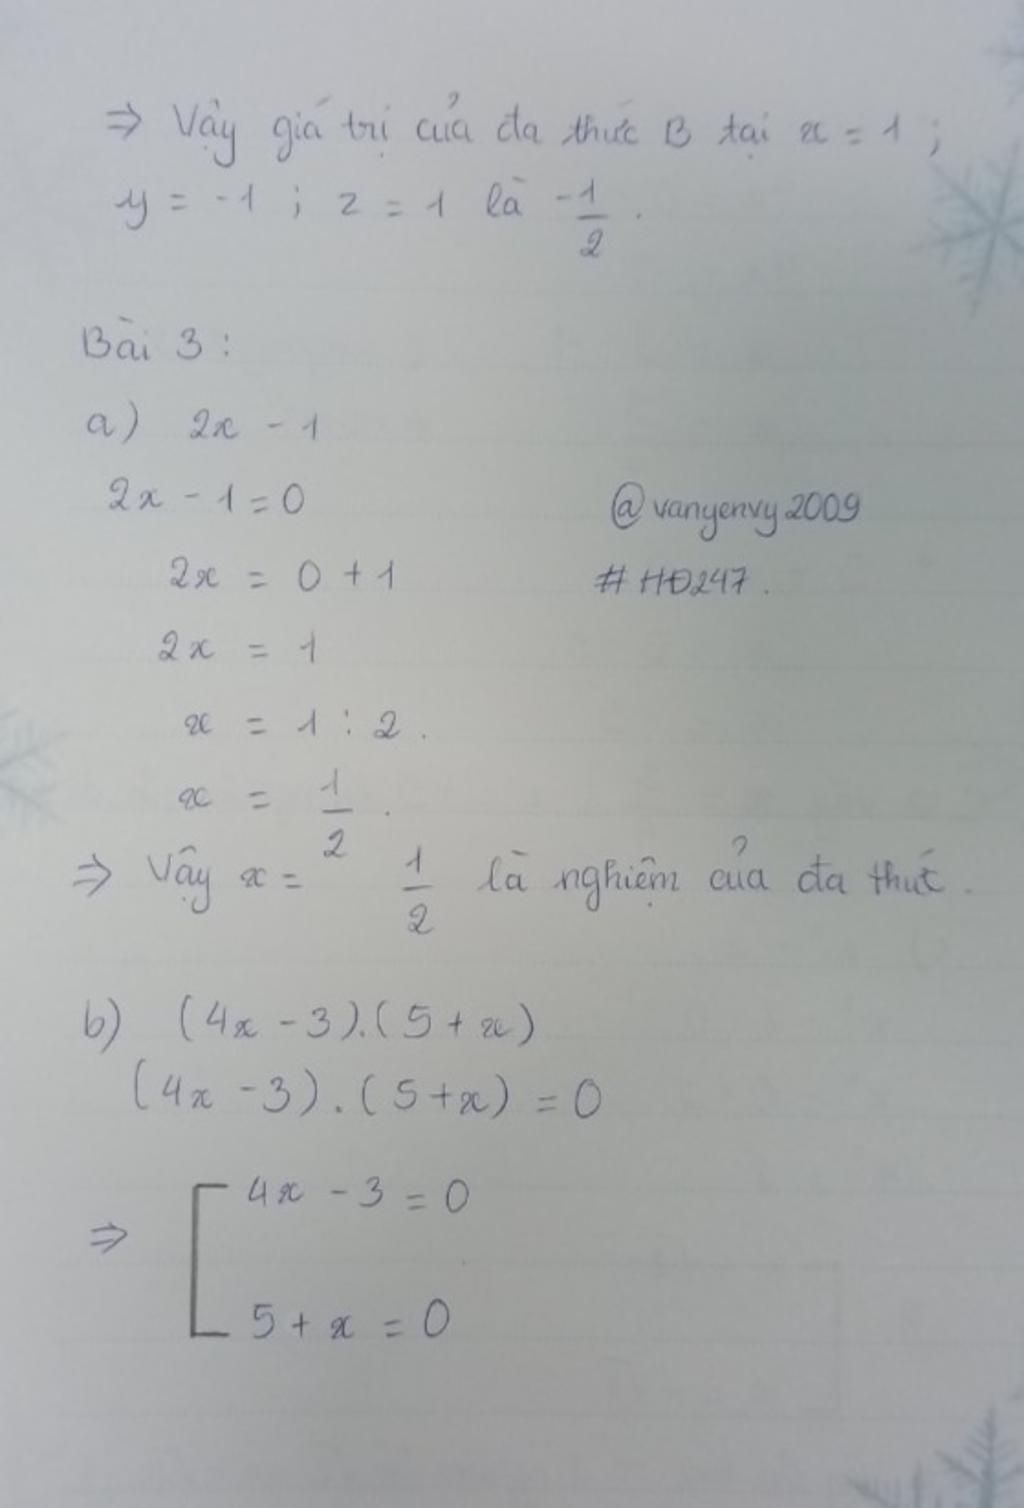 ⇒ Vậy giá trị của đa thức B tại x = 1 ;
y = -1 ; z = 1 là -1/2 .
Bài 3 :
a) 2x - 1
2x - 1 = 0
@vanyenvy2009
2x = 0 + 1
#HĐ247.
2x = 1
x = 1 : 2 .
x = 1/2 .
⇒ Vậy x = 1/2 là nghiệm của đa thức .
b) (4x - 3).(5 + x)
(4x - 3) . (5 + x) = 0
⇒ [ 4x - 3 = 0
5 + x = 0